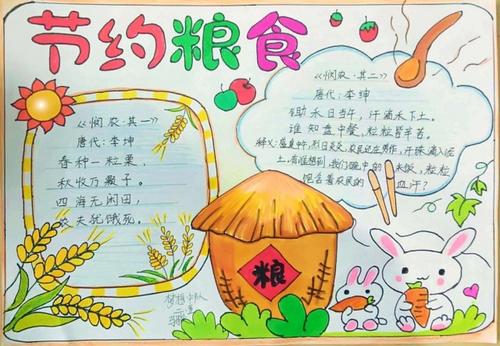 节约粮食
《悯农·其一》
唐代：李坤
春种一粒粟，
秋收万颗子。
四海无闲田，
农夫犹饿死。
《悯农·其二》
唐代：李坤
锄禾日当午，汗滴禾下土。
谁知盘中餐，粒粒皆辛苦。
释义：盛夏中午，烈日炎炎，农民还在劳作，汗珠滴入泥
土，有谁想到，我们碗中的米饭，粒粒
饱含着农民的血汗？
粮
中队